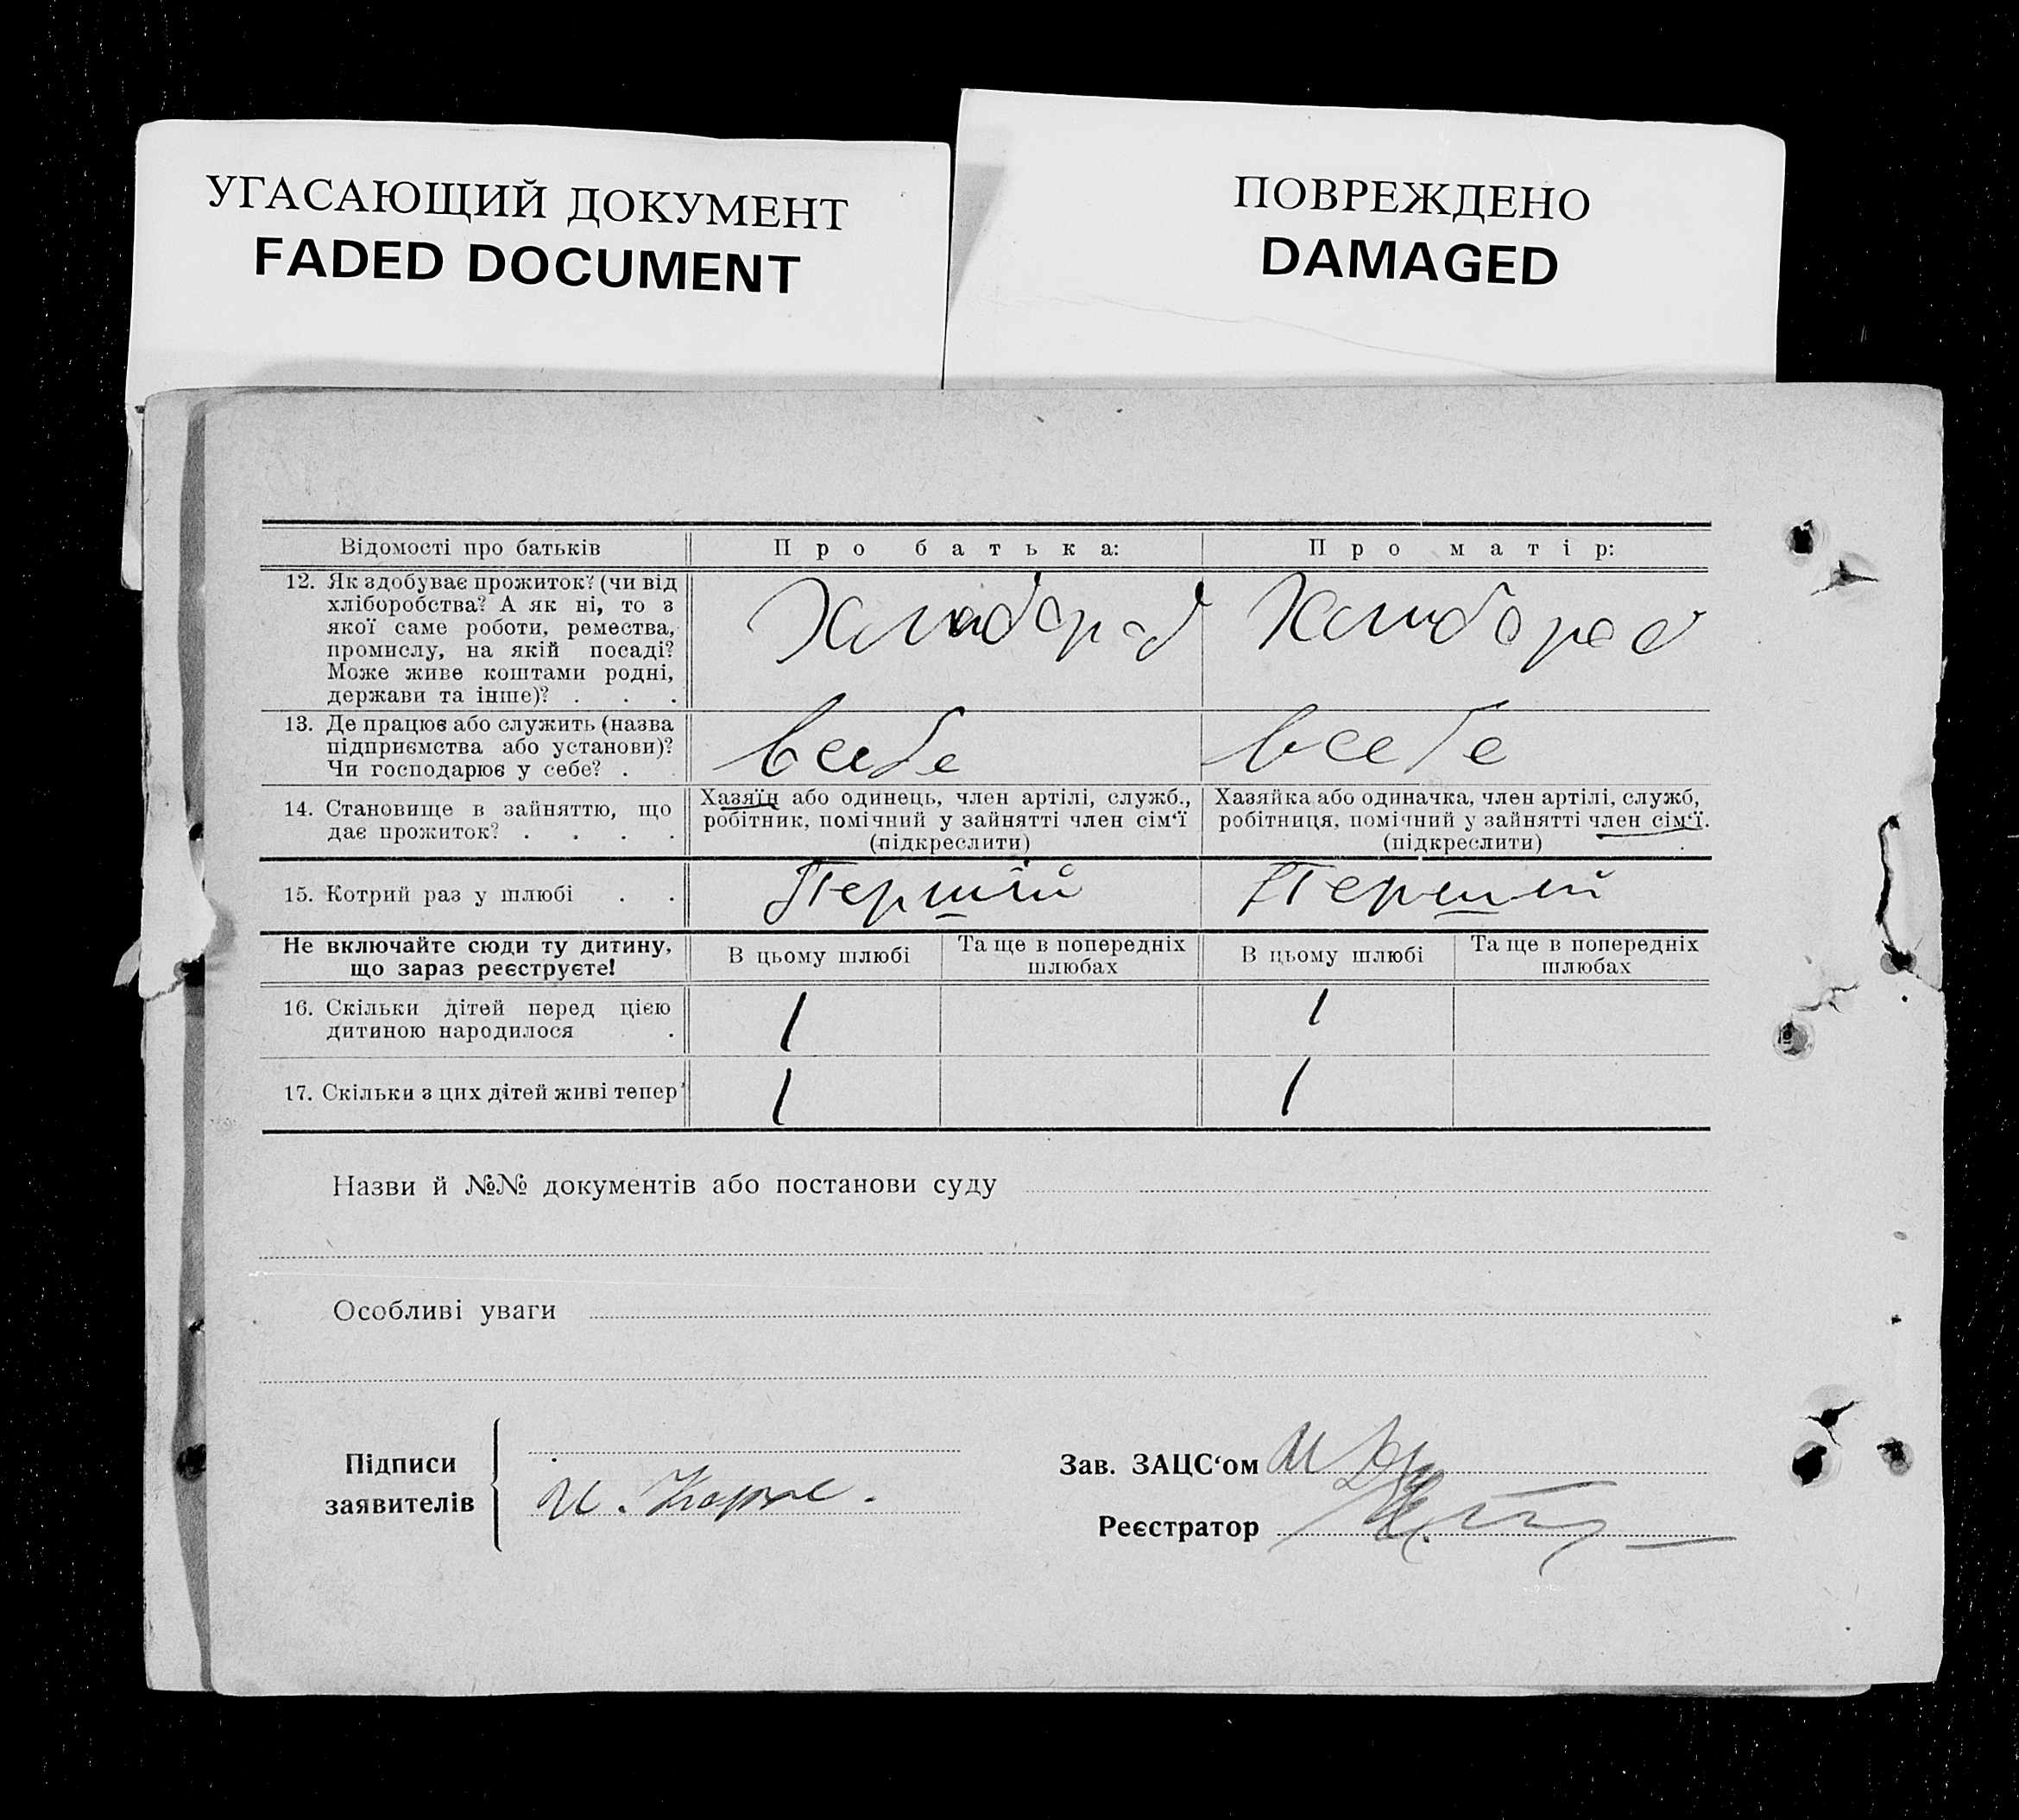 УГАСАЮЩИЙ ДОКУМЕНТ
FADED DOCUMENT
ПОВРЕЖДЕНО
DAMAGED
Відомості про батьків
Про батька:
Про матір:
12. Як здобуває прожиток? (чи від
хліборобства? А як ні, то з
якої саме роботи, ремества,
промислу, на якій посаді?
Може живе коштами родні,
держави та інше)? . . .
Хлибороб
Хлибороб
13. Де працює або служить (назва
підприємства або установи)?
Чи господарює у себе? .
в себе
в себе
14. Становище в зайняттю, що
дає прожиток? . . . .
Хазяїн або одинець, член артілі, служб.,
робітник, помічний у зайнятті член сім‘ї
(підкреслити)
Хазяйка або одиначка, член артілі, служб,
робітниця, помічний у зайнятті член сім‘ї.
(підкреслити)
15. Котрий раз у шлюбі . .
Перший
Перший
Не включайте сюди ту дитину,
що зараз реєструєте!
В цьому шлюбі
Та ще в попередніх
шлюбах
В цьому шлюбі
Та ще в попередніх
шлюбах
16. Скільки дітей перед цією
дитиною народилося .
1
1
17. Скільки з цих дітей живі тепер
1
1
Назви й №№ документів або постанови суду
Особливі уваги
Підписи
заявителів
И.
Зав. ЗАЦС‘ом
Реєстратор